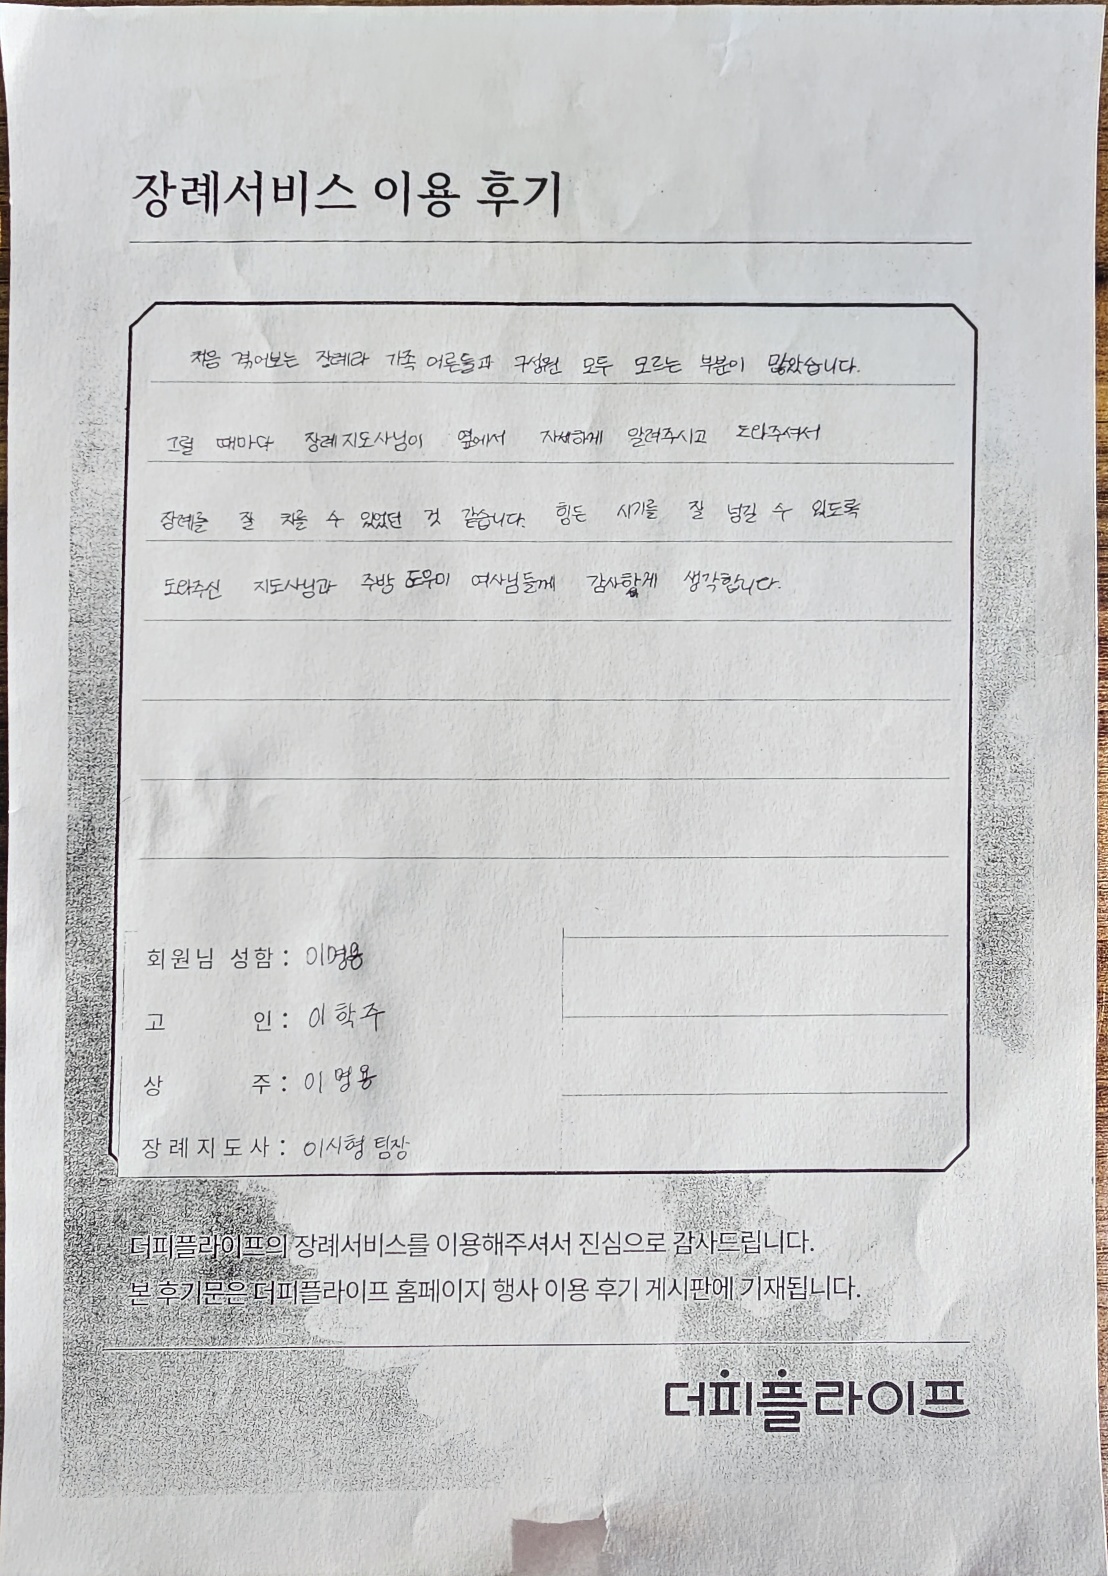 장례서비스 이용 후기
처음 겪어보는 장례라 가족 어른들과 구성원 모두 모르는 부분이 많았습니다.
그럴 때마다 장례지도사님이 옆에서 자세하게 알려주시고 도와주셔서
장례를 잘 치를 수 있었던 것 같습니다. 힘든 시기를 잘 넘길 수 있도록
도와주신 지도사님과 주방 도우미 여사님들께 감사하게 생각합니다.
회원님 성함 : 이명용
고 인 : 이학주
상 주 : 이명용
장례지도사 : 이시형 팀장
더피플라이프의 장례서비스를 이용해주셔서 진심으로 감사드립니다.
본 후기문은 더피플라이프 홈페이지 행사 이용 후기 게시판에 기재됩니다.
더피플라이프